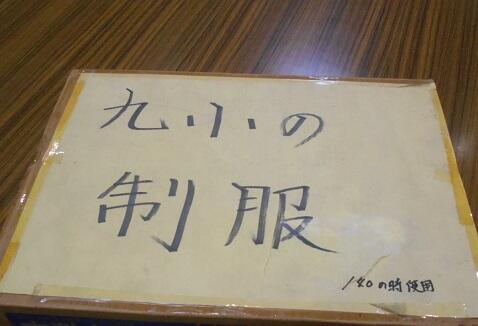 九小の
制服
140の時使用